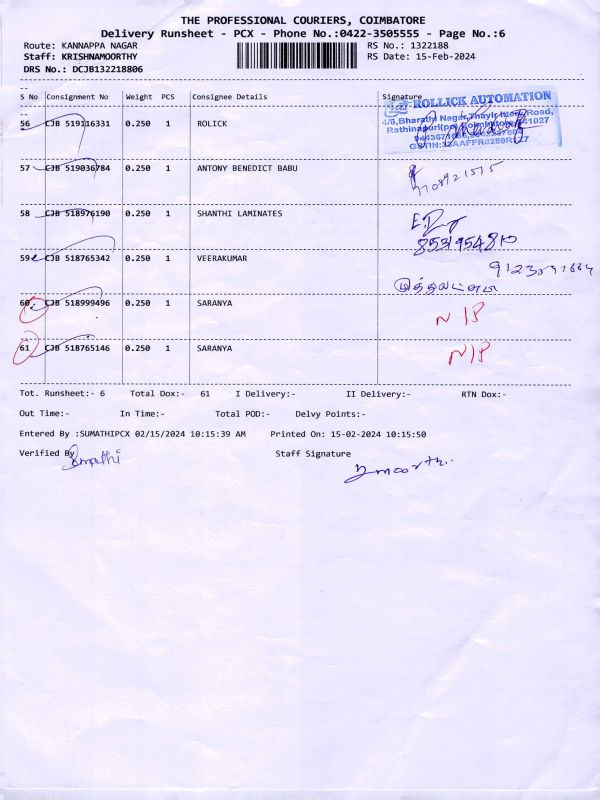 THE PROFESSIONAL COURIERS, COIMBATORE
Delivery Runsheet - PCX - Phone No.:0422-3505555 - Page No.:6
Route: KANNAPPA NAGAR RS No.: 1322188
Staff: KRISHNAMOORTHY RS Date: 15-Feb-2024
DRS No.: DCJB132218806
S No Consignment No Weight PCS Consignee Details Signature
ROLLICK AUTOMATION
56 CJB 519116331 0.250 1 ROLICK
57 CJB 519036784 0.250 1 ANTONY BENEDICT BABU
58 CJB 518976190 0.250 1 SHANTHI LAMINATES
59 CJB 518765342 0.250 1 VEERAKUMAR
60 CJB 518999496 0.250 1 SARANYA N/P
61 CJB 518765146 0.250 1 SARANYA N/P
Tot. Runsheet:- 6 Total Dox:- 61 I Delivery:- II Delivery:- RTN Dox:-
Out Time:- In Time:- Total POD:- Delvy Points:-
Entered By :SUMATHIPCX 02/15/2024 10:15:39 AM Printed On: 15-02-2024 10:15:50
Verified By Staff Signature